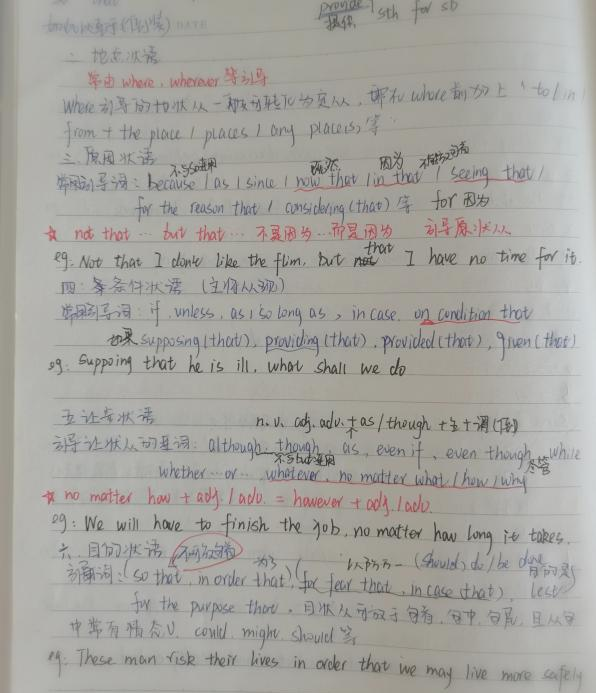 provide sth for sb
提供
DATE
二. 地点状语
常由where, wherever 等引导
Where引导的地状从一般可转化为定从, 即在where前加上 "to / in /
from + the place / places / any places, 等
三. 原因状语
不与so连用 既然 因为
常用引导词: because / as / since / now that / in that / seeing that /
for the reason that / considering (that) 等 for 因为
☆ not that … but that … 不是因为…而是因为 引导原状从
that
eg: Not that I don't like the flim, but I have no time for it.
四. 条件状语 (主将从现)
常用引导词: if, unless, as / so long as, in case, on condition that
如果 supposing (that), providing (that), provided (that), given (that)
eg: Suppoing that he is ill, what shall we do
五 让步状语 n. v. adj. adv. + as / though + 主 + 谓 (倒)
引导让状从的连词: although, though, as, even if, even though, while
不与but连用 尽管
whether … or … whatever, no matter what / how / why
☆ no matter how + adj. / adv. = however + adj. / adv.
eg: We will have to finish the job, no matter how long it takes.
六. 目的状语 不可放句首 为了 以防万一 (should) do / be done
引导词: (so that, in order that) (for fear that, in case that), lest
for the purpose that, 目状从可放于句首, 句中, 句尾, 且从句
中常有情态V. could, might, should 等
eg: These man risk their lives in order that we may live more safely